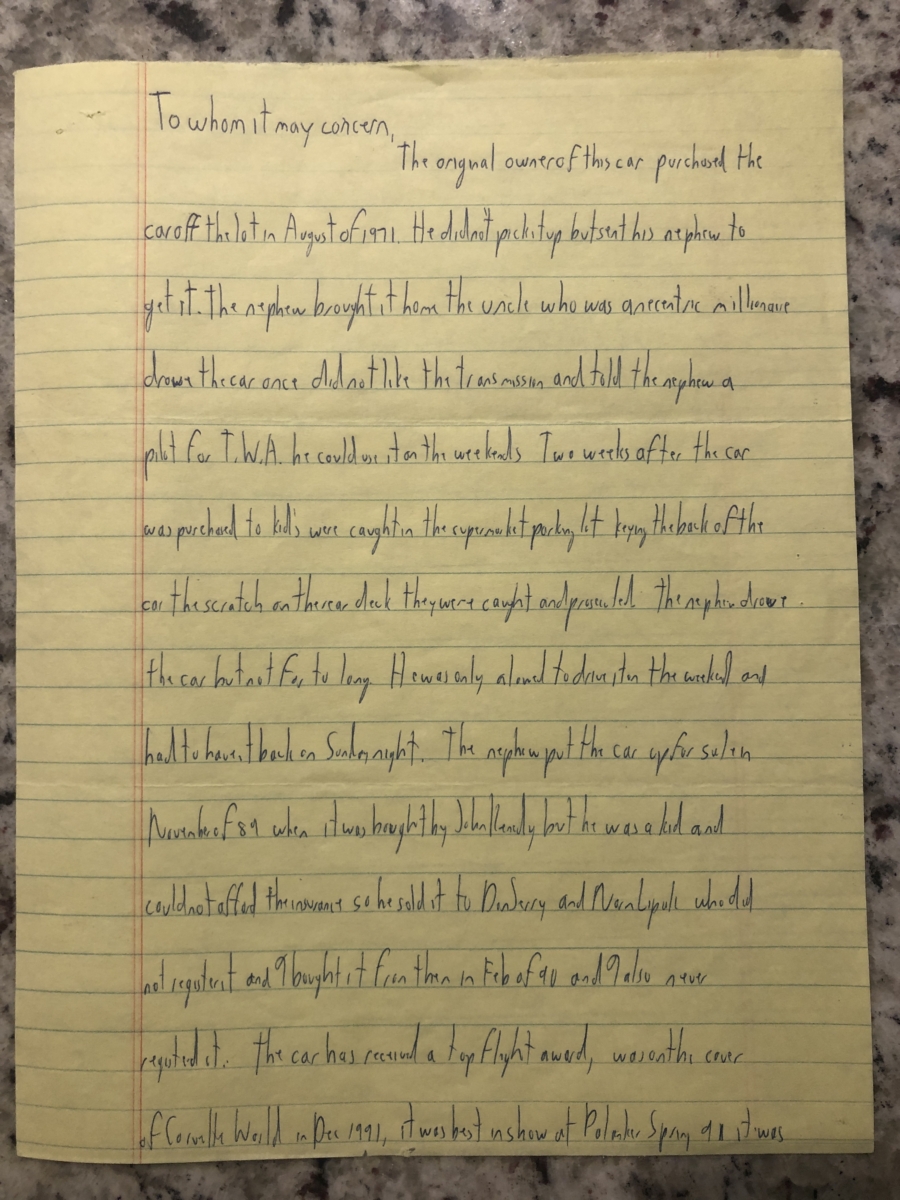 To whom it may concern,
The original owner of this car purchased the
car off the lot in August of 1971. He did not pick it up but sent his nephew to
get it. The nephew brought it home the uncle who was an eccentric millionaire
drove the car once did not like the transmission and told the nephew a
pilot for T.W.A. he could use it on the weekends Two weeks after the car
was purchased to kid's were caught in the supermarket parking lot keying the back of the
car the scratch on the rear deck they were caught and prosecuted The nephew drove.
the car but not for to long. He was only alowed to drive it on the weekend and
had to have it back on Sunday night. The nephew put the car up for sale in
November of 89 when it was bought by John but he was a kid and
could not afford the insurance so he sold it to and who did
not register it and I bought it from them in Feb of 90 and I also never
registed it. The car has received a top flight award, was on the cover
of Corvette World in Dec 1991, it was best in show at Spring it was